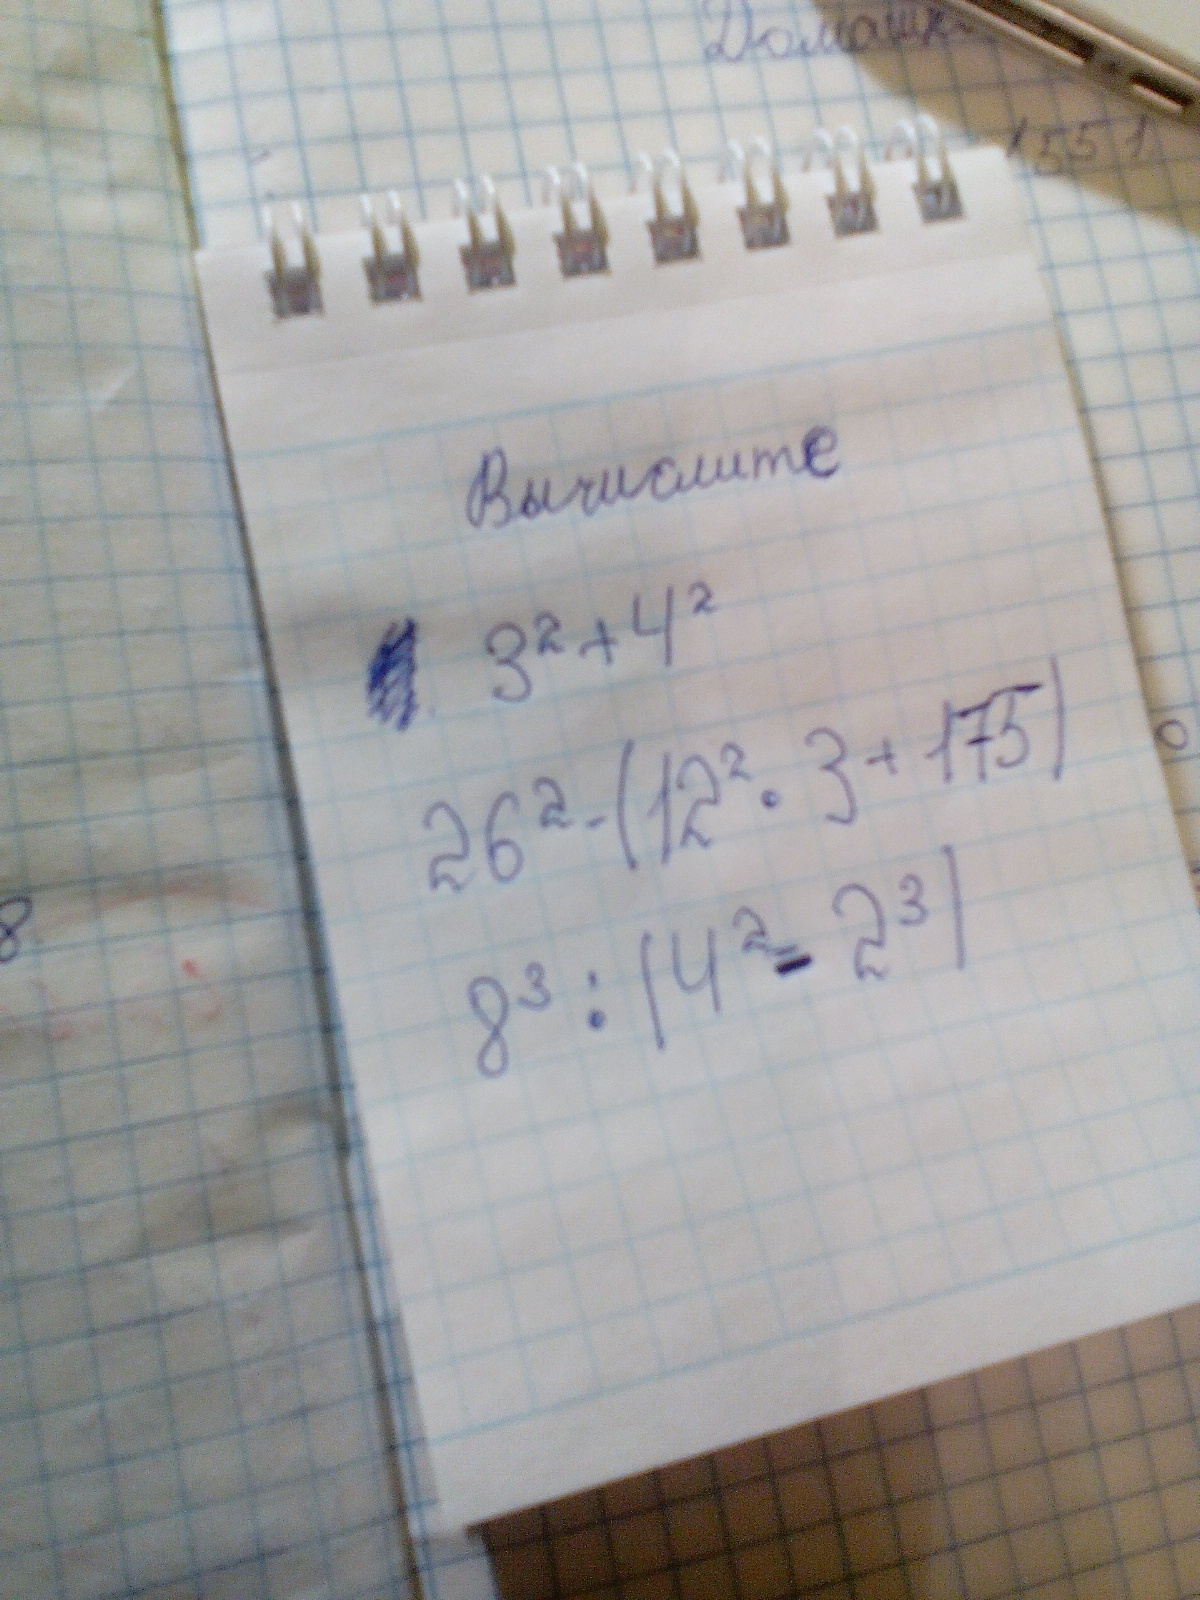 1551
Вычислите
3² + 4²
26² - (12² · 3 + 175)
8³ : (4² - 2³)
8